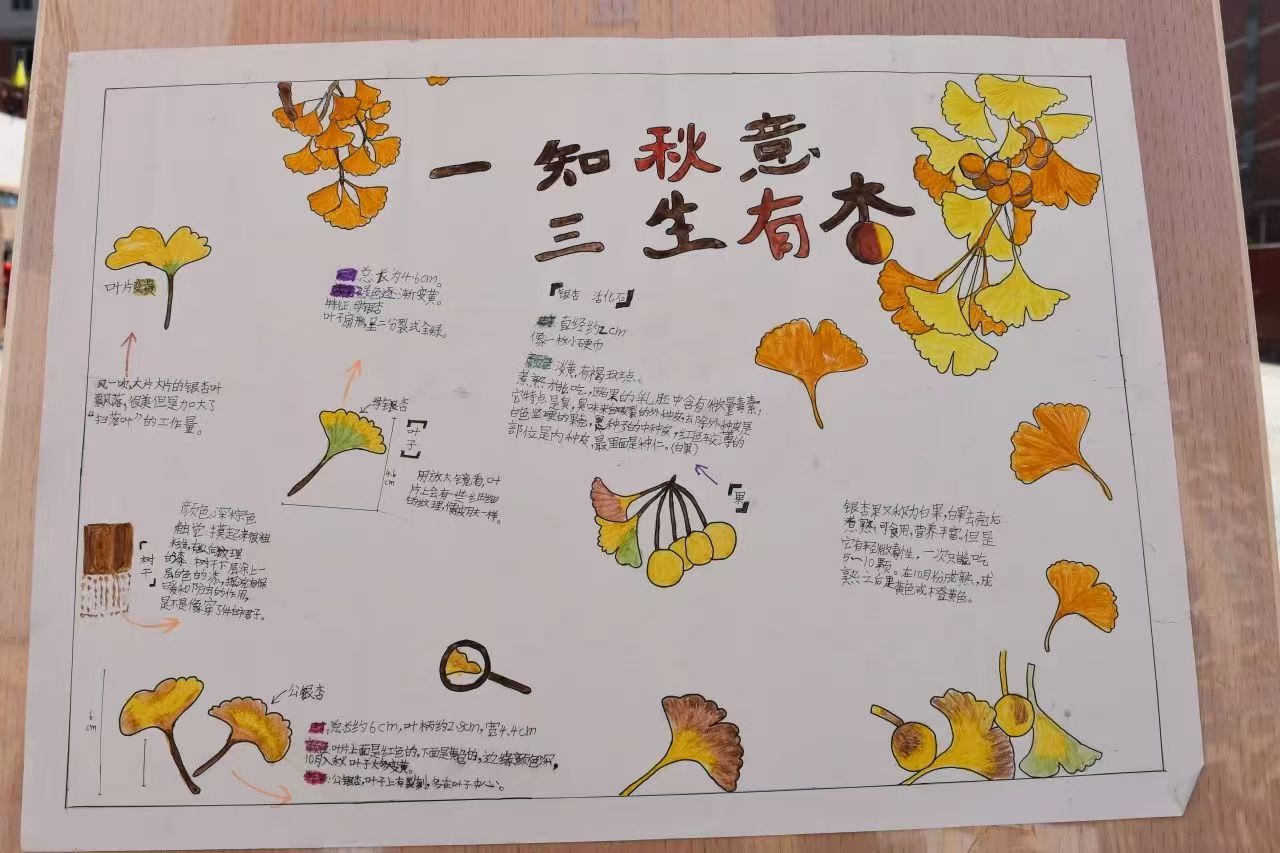 一知秋意
三生有杏
叶片变黄
风一吹,大片大片的银杏叶
飘落,很美但是加大了
“扫落叶”的工作量。
总长为4.6cm。
绿色逐渐变黄。
特征:母银杏
叶子扇形,呈二分裂式全缘。
母银杏
【叶子】
4.6
cm
用放大镜看,叶
片上会有一些细细
的纹理,像
一样。
「银杏 活化石」
直径约2cm
像一枚小硬币
颜色:淡黄,有褐斑点。
煮熟才能吃,因果的乳胚中含有微量毒素,
它特点是臭,臭味来自
的外种皮,去除外种皮是
白色坚硬的
,是种子的中种皮,红色较薄的
部位是内种皮,最里面是种仁。(白果)
「果」
颜色:深棕色
触觉:摸起来很粗
糙,有纵向纹理
的
。树干下层涂上一
层白色的
漆,
保
暖和防虫的作用,
是不是像穿了件白裙子。
「树干」
银杏果又称为白果,白果去壳后
煮熟,可食用,营养丰富。但是
它有轻微毒性,一次只能吃
5~10颗。在10月份成熟,成
熟之后果黄色或橙黄色。
6
cm
公银杏
总长约6cm,叶柄约2.8cm,宽4.4cm
叶片上面是红色的,下面是黄色的,边缘颜色深,
10月入秋叶子大多变黄。
:公银杏,叶子上有裂刻,多在叶子中心。